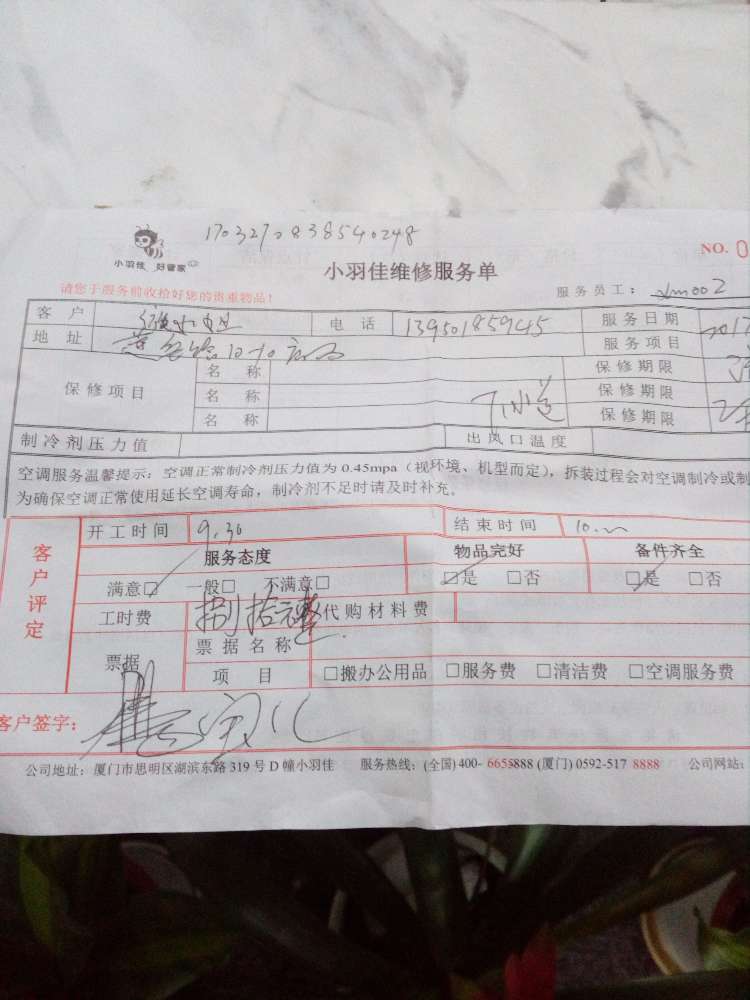 1703270838540248
小羽佳 好管家
NO. 0
小羽佳维修服务单
请您于服务前收拾好您的贵重物品!
服务员工: xm002
客户 电话 13950185945 服务日期 2017
地址 服务项目
保修项目 名称 保修期限
名称 保修期限
名称 保修期限
制冷剂压力值 出风口温度
空调服务温馨提示: 空调正常制冷剂压力值为 0.45mpa (视环境、机型而定), 拆装过程会对空调制冷或制
为确保空调正常使用延长空调寿命, 制冷剂不足时请及时补充。
客户评定
开工时间 9.30 结束时间 10.
服务态度 物品完好 备件齐全
满意□ 一般□ 不满意□ □是 □否 □是 □否
工时费 捌拾元整 代购材料费
票据 票据名称
项目 □搬办公用品 □服务费 □清洁费 □空调服务费
客户签字:
公司地址: 厦门市思明区湖滨东路 319 号 D 幢小羽佳 服务热线: (全国) 400- 6655888 (厦门) 0592-517 8888 公司网站: